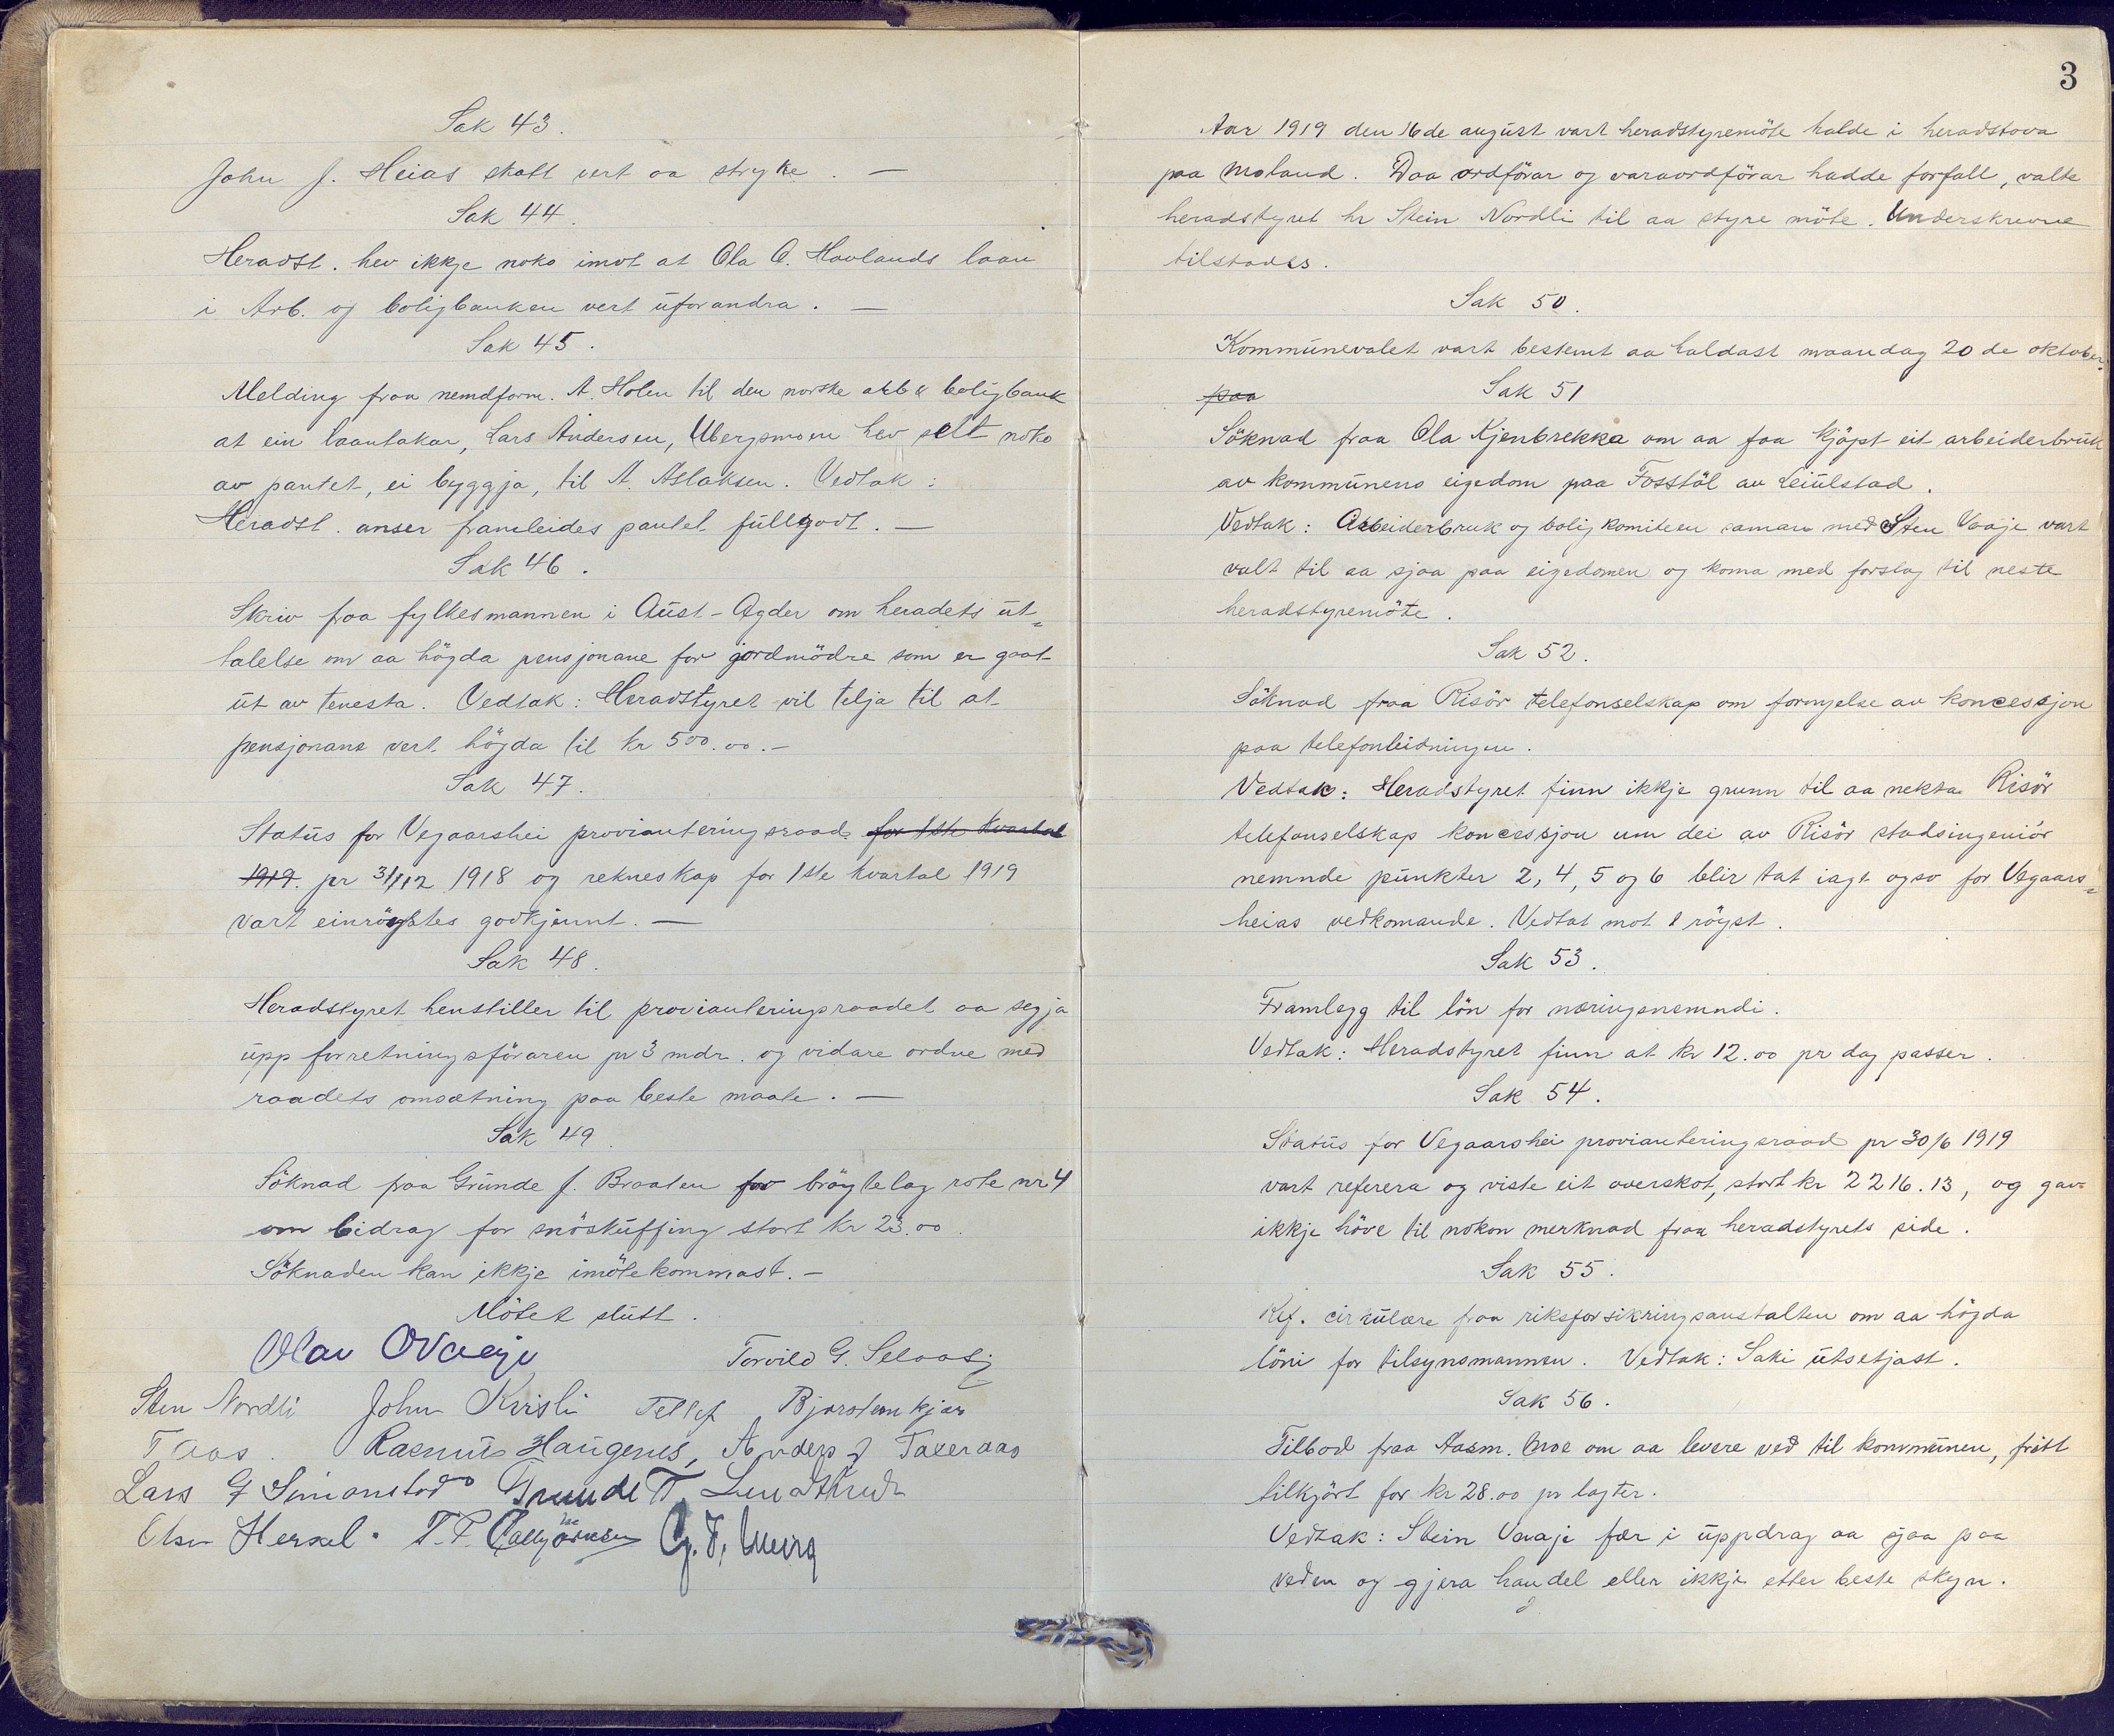 Sak 43.
John J. Heias skatt vert aa stryke. —
Sak 44.
Heradst. hev ikkje noko imot at Ola O. Havlands laan
i Arb. og boligbanken vert uforandra. —
Sak 45.
Melding fraa nemdform. A. Holen til den norske arb & boligbank
at ein laantakar, Lars Andersen, Ubergsmoen hev selt noko
av pantet, ei byggja, til A. Aslaksen. Vedtak:
Heradst. anser framleides pantet fullgodt. —
Sak 46.
Skriv fraa fylkesmannen i Aust-Agder om heradets ut=
talelse om aa högda pensjonane for jordmödre som er gaat
ut av tenesta. Vedtak: Heradstyret vil telja til at
pensjonane vert högda til kr 500.00. —
Sak 47.
Status for Vegaarshei provianteringsraad for 1ste kvartal
1919. pr 31/12 1918 og rekneskap for 1ste kvartal 1919
vart einröystes godkjennt. —
Sak 48.
Heradstyret henstiller til provianteringsraadet aa segja
upp forretningsföraren pr 3 mdr. og vidare ordne med
raadets omsætning paa beste maate. —
Sak 49.
Söknad fraa Grunde J. Braaten for bröytelag rote nr 4
om bidrag for snöskuffing stort kr 23.00.
Söknaden kan ikkje imötekommast. —
Mötet slutt.
Olav O Vaaje Torvild G. Selaas
Sten Nordli John Kvisli Tellef Bjorstemkjær
T Aas. Rasmus Haugenes, Anders J Taxeraas
Lars G Simonstad Grunde T. Lundstrud
Olsen Hersel. T. P.
3
Aar 1919 den 16de august vart heradstyremöte halde i heradstova
paa Moland. Daa ordförar og varaordförar hadde forfall, valte
heradstyret hr Stein Nordli til aa styre möte. Underskrevne
tilstades.
Sak 50.
Kommunevalet vart bestemt aa haldast maandag 20de oktober.
paa Sak 51
Söknad fraa Ola Kjenbrekka om aa faa kjöpt eit arbeiderbruk
av kommunens eigedom paa Fosstöl av Leiulstad.
Vedtak: Arbeiderbruk og boligkomiteen saman med Sten Vaaje vart
valt til aa sjaa paa eigedomen og koma med forslag til neste
heradstyremöte.
Sak 52.
Söknad fraa Risör telefonselskap om fornyelse av koncessjon
paa telefonleidningen.
Vedtak: Heradstyret finn ikkje grunn til aa nekta Risör
telefonselskap koncessjon um dei av Risör stadsingeniör
nemnde punkter 2, 4, 5 og 6 blir tat iagt ogso for Vegaars=
heias vedkomande. Vedtat mot 1 röyst.
Sak 53.
Framlegg til lön for næringsnemndi.
Vedtak: Heradstyret finn at kr 12.00 pr dag passer.
Sak 54.
Status for Vegaarshei provianteringsraad pr 30/6 1919
vart referera og viste eit overskot, stort kr 2216.13, og gav
ikkje höve til nokon merknad fraa heradstyrets side.
Sak 55.
Ref. cirkulære fraa riksforsikringsanstalten om aa högda
löni for tilsynsmannen. Vedtak: Saki utsetjast.
Sak 56.
Tilbod fraa Aasm. Moe om aa levere ved til kommunen, fritt
tilkjört for kr 28.00 pr lagter.
Vedtak: Stein Vaaje fær i uppdrag aa sjaa paa
veden og gjera handel eller ikkje etter beste skyn.